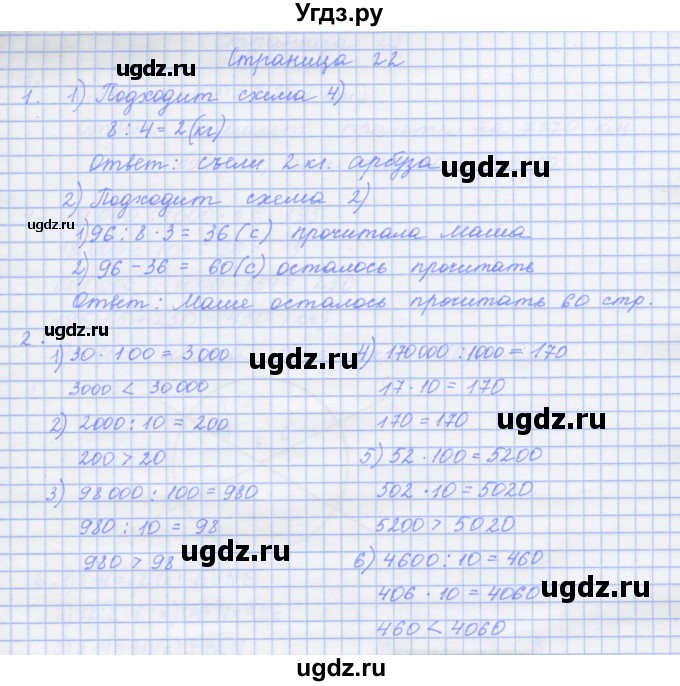 Угдз.ру
Страница 22
1. 1) Подходит схема 4)
8 : 4 = 2 (кг)
Ответ: съели 2 кг. арбуза
2) Подходит схема 2)
1) 96 : 8 · 3 = 36 (с) прочитала Маша
2) 96 - 36 = 60 (с) осталось прочитать
Ответ: Маше осталось прочитать 60 стр.
2.
1) 30 · 100 = 3000
3000 < 30000
2) 2000 : 10 = 200
200 > 20
3) 98000 : 100 = 980
980 : 10 = 98
980 > 98
4) 170000 : 1000 = 170
17 · 10 = 170
170 = 170
5) 52 · 100 = 5200
502 · 10 = 5020
5200 > 5020
6) 4600 : 10 = 460
406 · 10 = 4060
460 < 4060
ugdz.ru
ugdz.ru
ugdz.ru
ugdz.ru
ugdz.ru
ugdz.ru
ugdz.ru
ugdz.ru
ugdz.ru